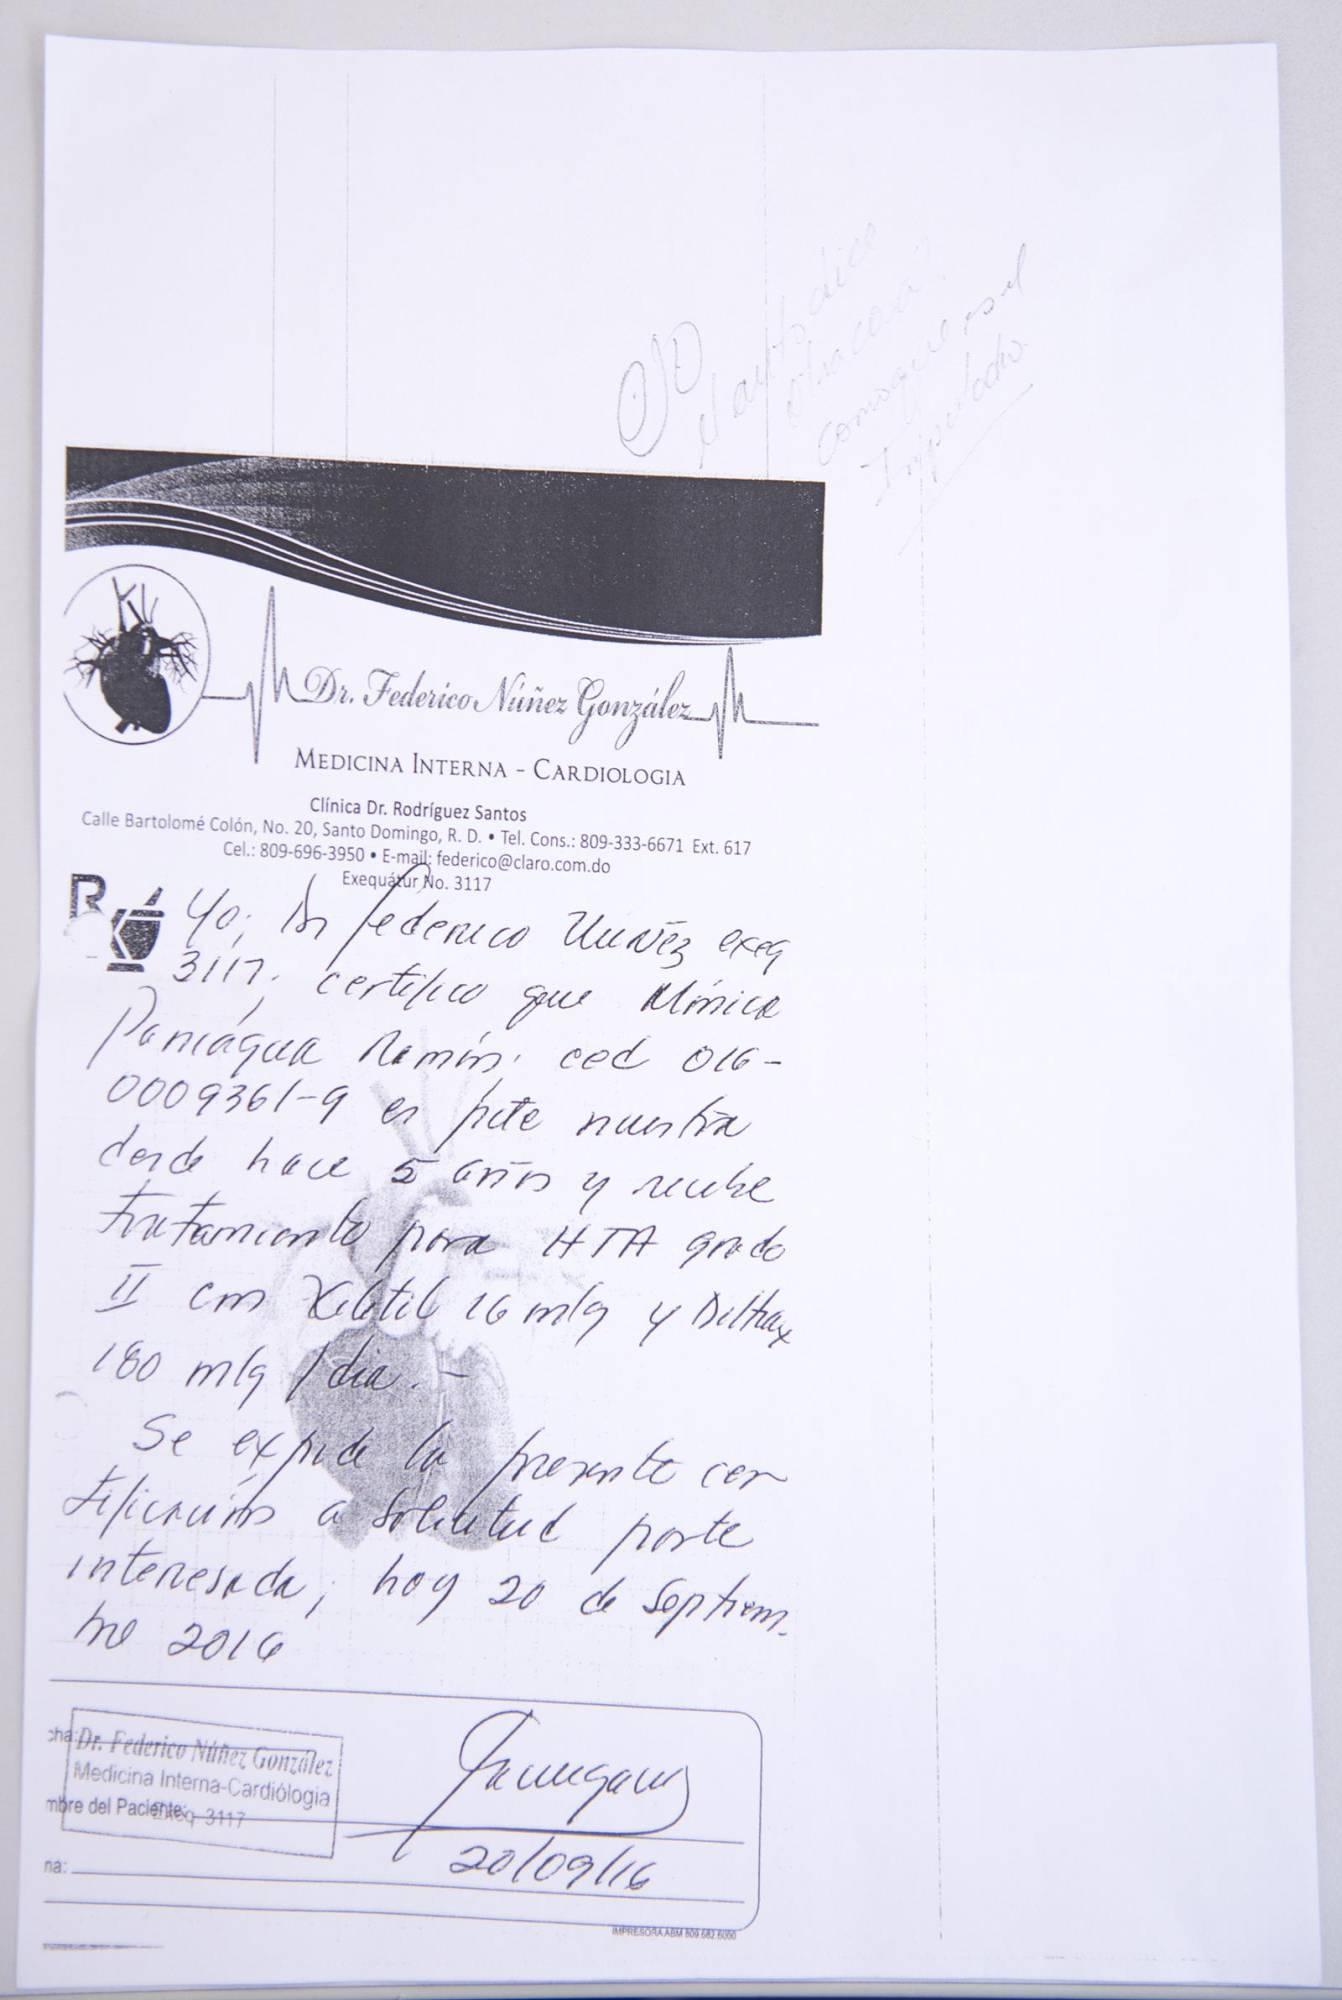 OJO
el auto dice
otra cosa
como que es el
Imputado
Dr. Federico Núñez González
MEDICINA INTERNA - CARDIOLOGIA
Clínica Dr. Rodríguez Santos
Calle Bartolomé Colón, No. 20, Santo Domingo, R. D. • Tel. Cons.: 809-333-6671 Ext. 617
Cel.: 809-696-3950 • E-mail: federico@claro.com.do
Exequátur No. 3117
Yo, Dr Federico Nuñez exeq
3117, certifico que Mónica
Paniágua Ramón. ced 016-
0009361-9 es pcte nuestra
desde hace 5 años y recibe
tratamiento para HTA grado
II con 16 mlg y Diltiax
180 mlg/dia.-
Se expide la presente cer
tificación a solicitud parte
interesada, hoy 20 de Septiem-
bre 2016
cha:
Dr. Federico Núñez González
Medicina Interna-Cardiólogia
mbre del Paciente:
Exeq 3117
20/09/16
na:
IMPRESORA ABM 809.682.6000